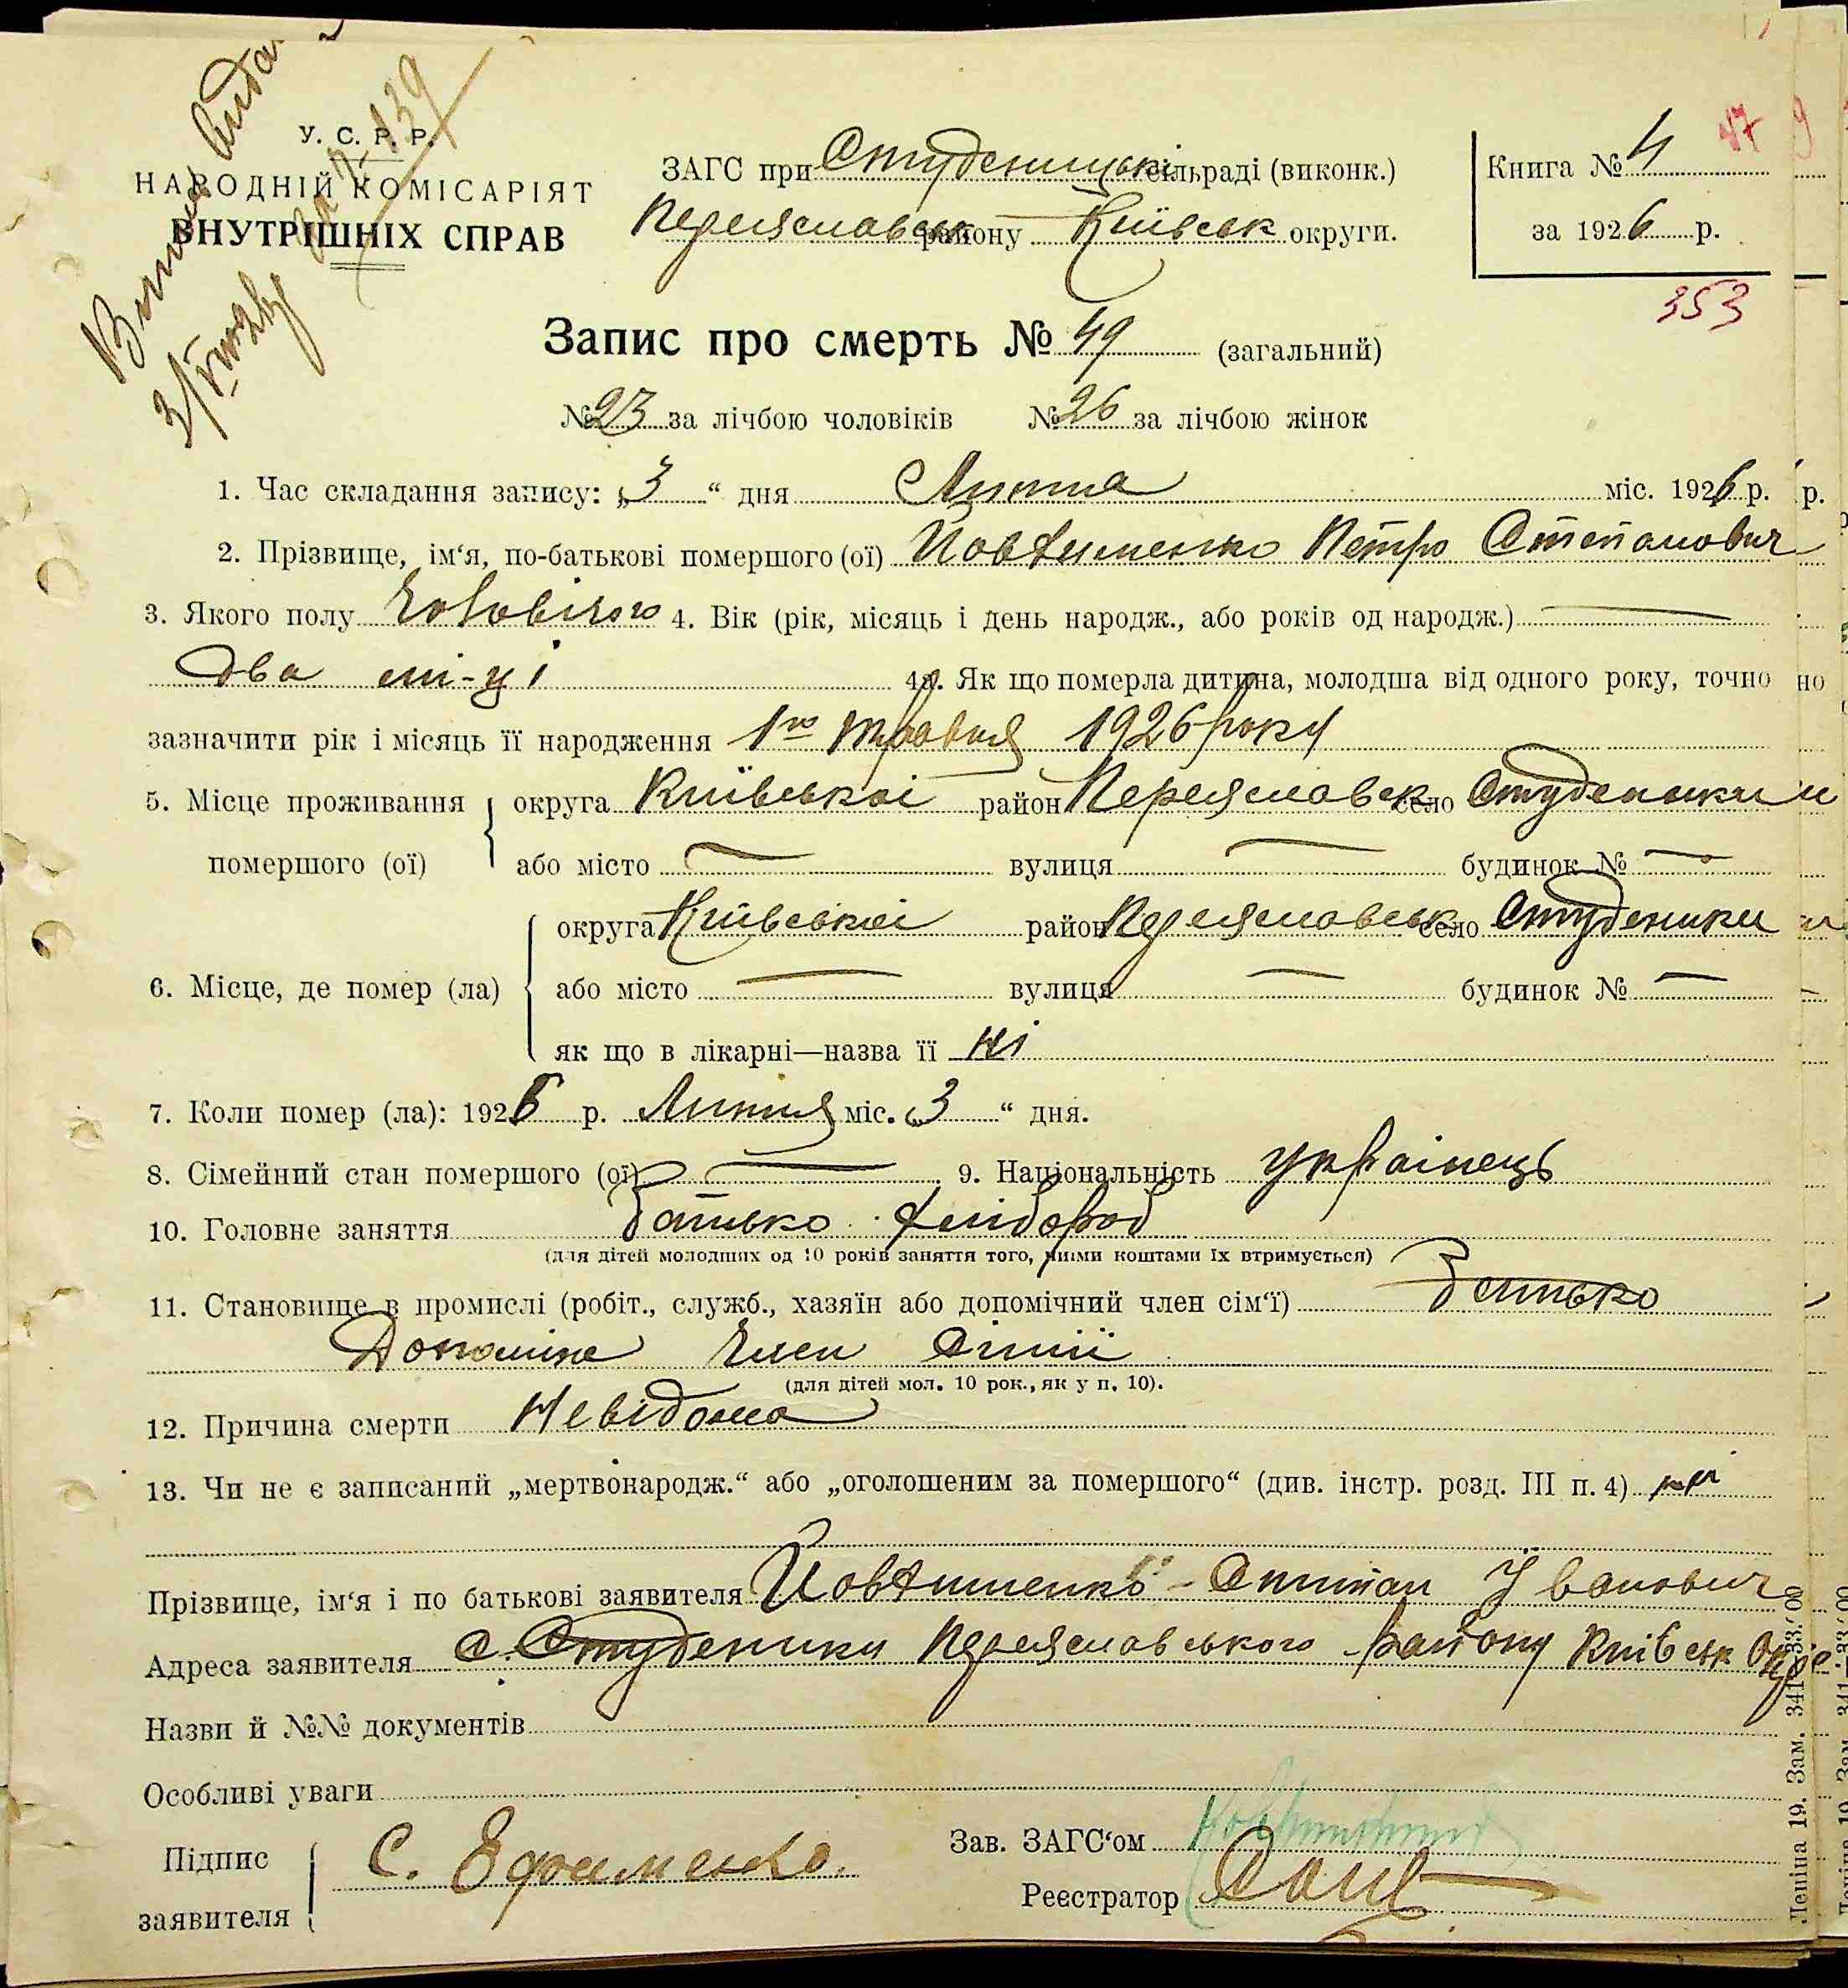 У. С. Р. Р.
НАРОДНІЙ КОМІСАРІЯТ
ВНУТРІШНІХ СПРАВ
ЗАГС при Студеницькі сільраді (виконк.)
Переяславськ району Київськ округи.
Книга № 4
47
за 1926 р.
353
Запис про смерть № 49 (загальний)
№ 23 за лічбою чоловіків № 26 за лічбою жінок
1. Час складання запису: „3“ дня Липня міс. 1926 р.
2. Прізвище, ім‘я, по-батькові помершого (ої) Йовхименко Петро Степанович
3. Якого полу Чоловічого 4. Вік (рік, місяць і день народж., або років од народж.) —
два мі-ці 4а. Як що померла дитина, молодша від одного року, точно
зазначити рік і місяць її народження 1го травня 1926 року
5. Місце проживання помершого (ої) округа Київськоі район Переяславськ село Студеники
або місто — вулиця — будинок № —
6. Місце, де помер (ла) округа Київськоі район Переяславськ село Студеники
або місто — вулиця — будинок № —
як що в лікарні—назва її ні
7. Коли помер (ла): 1926 р. Липня міс. „3“ дня.
8. Сімейний стан помершого (ої) — 9. Національність українець
10. Головне заняття батько хлібороб
(для дітей молодших од 10 років заняття того, чиїми коштами їх втримується)
11. Становище в промислі (робіт., служб., хазяїн або допомічний член сім‘ї) батько
Допоміж Член сімії
(для дітей мол. 10 рок., як у п. 10).
12. Причина смерти Невідома
13. Чи не є записаний „мертвонародж.“ або „оголошеним за помершого“ (див. інстр. розд. III п. 4) ні
Прізвище, ім‘я і по батькові заявителя Йовхименко - Степан Іванович
Адреса заявителя с. Студеники Переяславського району Київськ Окр
Назви й №№ документів
Особливі уваги
Підпис заявителя С. Ефименко.
Зав. ЗАГС‘ом
Реєстратор
Леніна 19. Зам. 341—33.